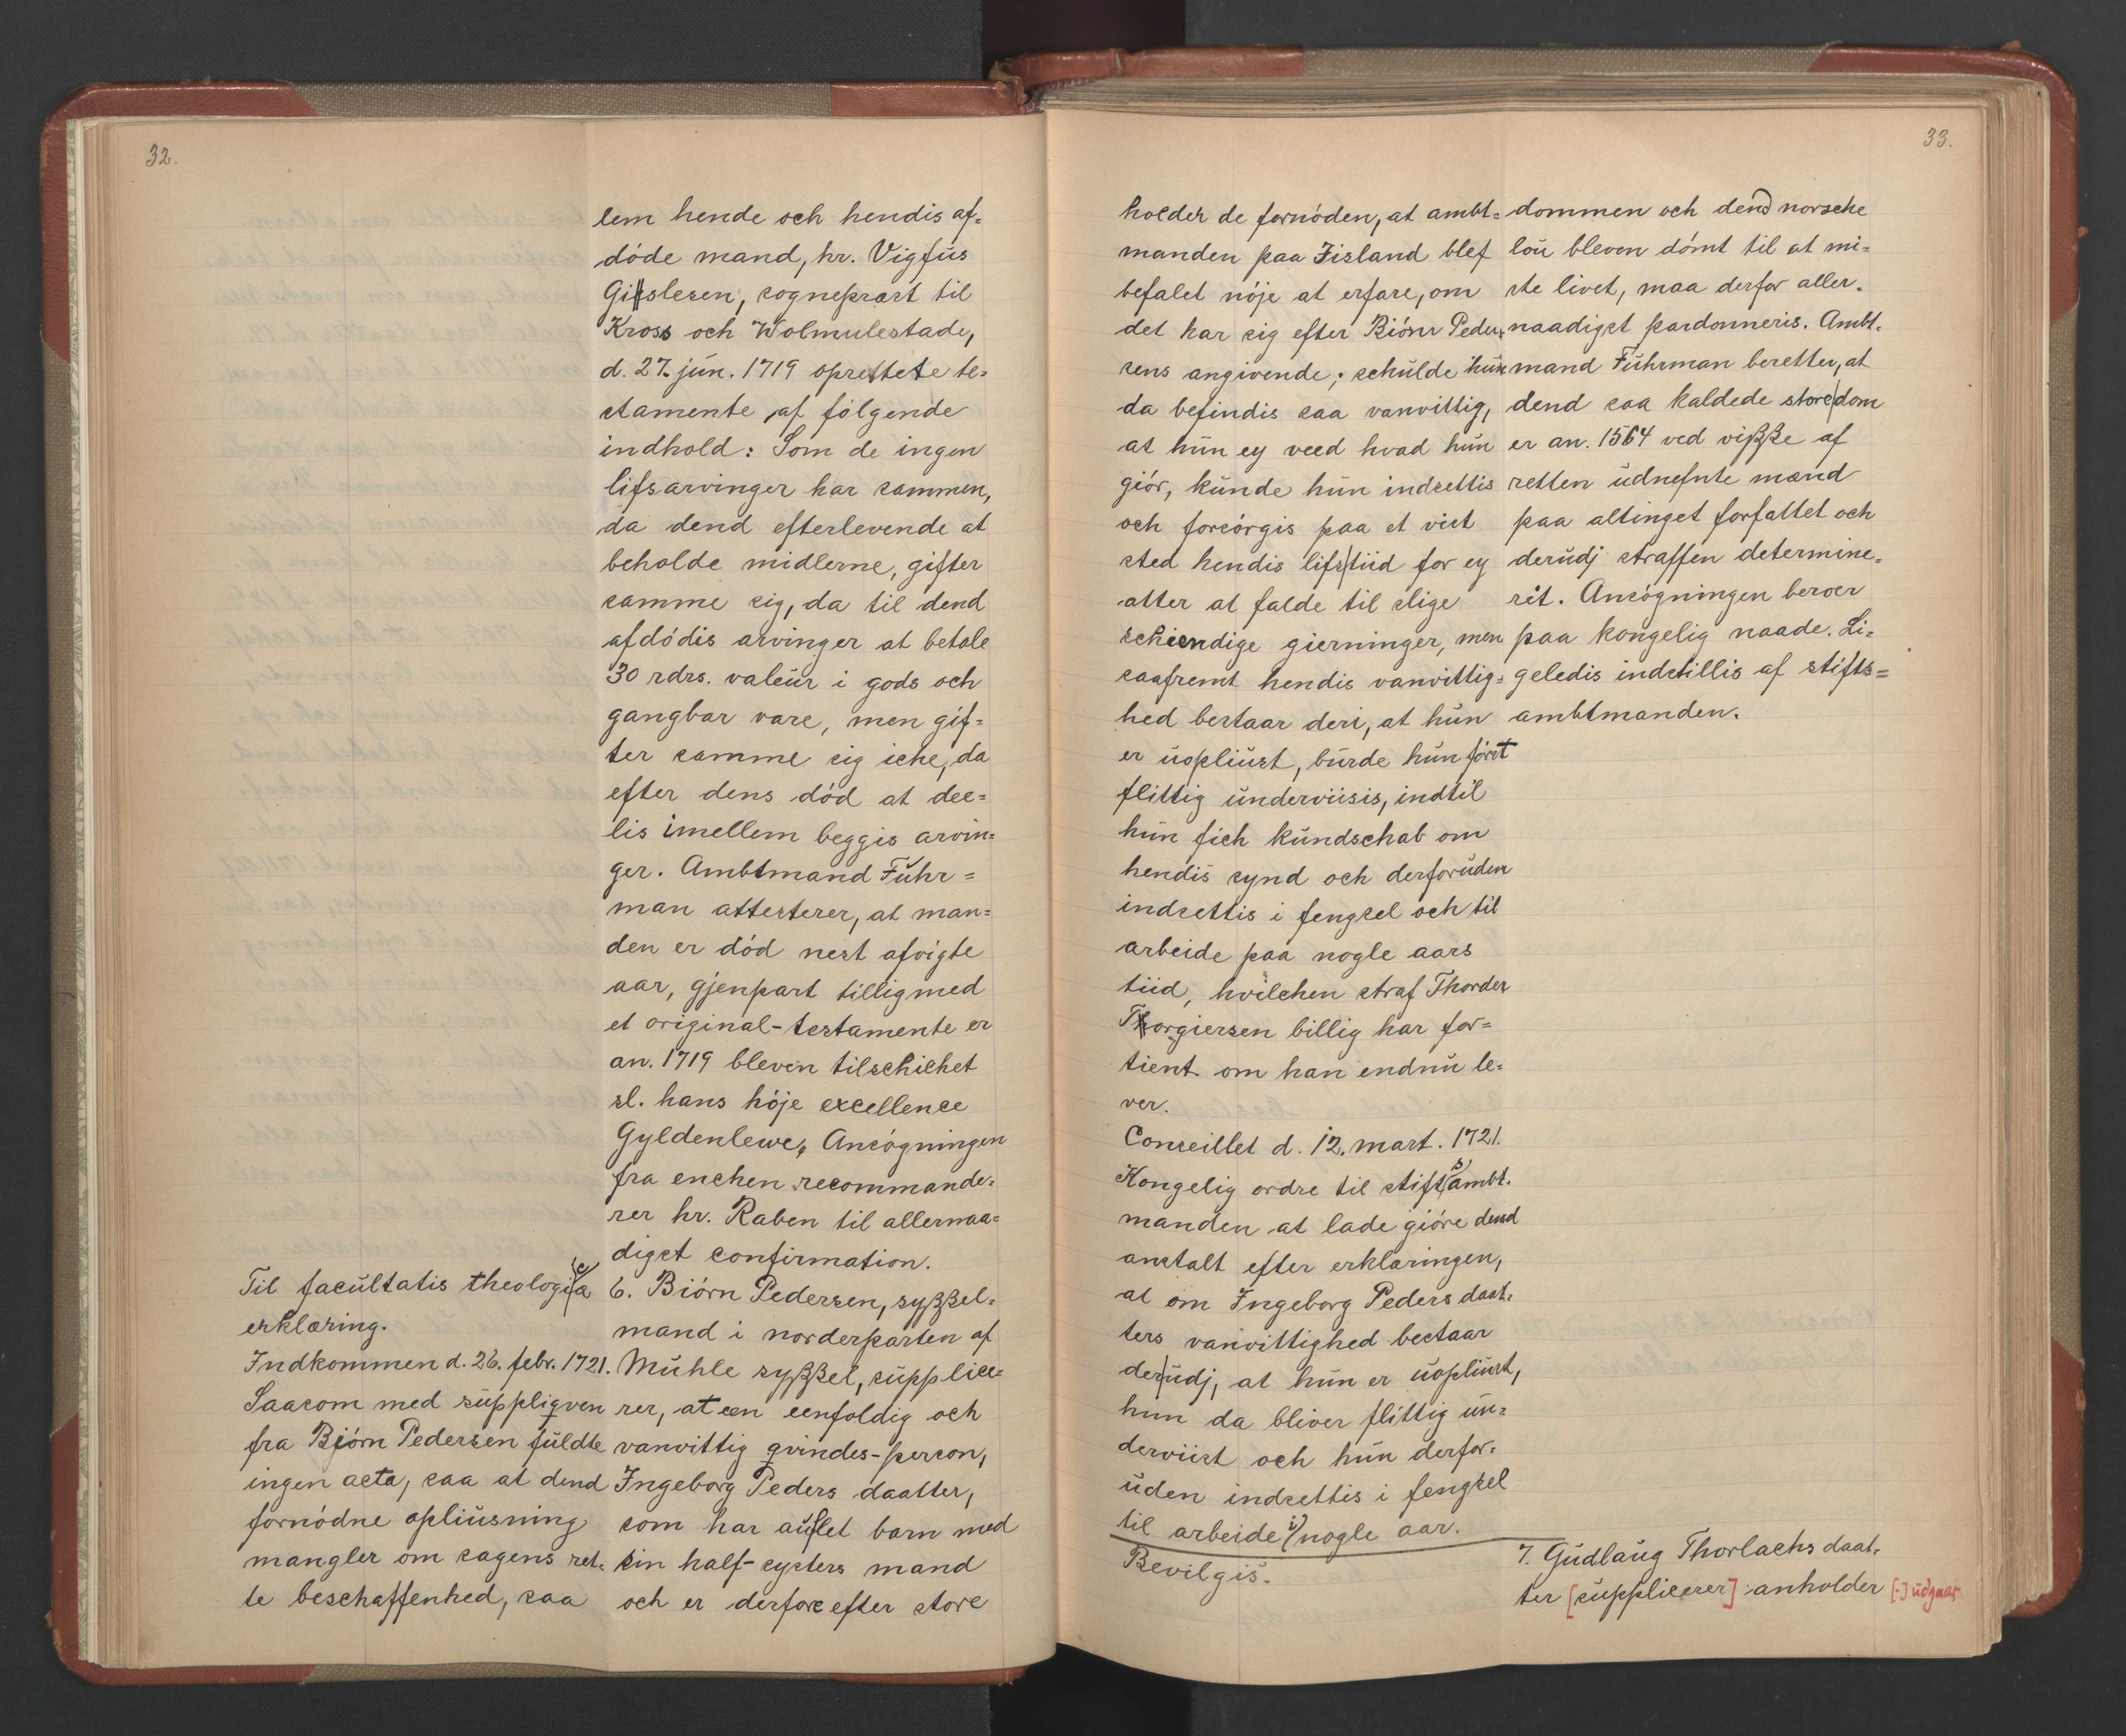 32.
lem hende och hendis af-
döde mand, hr. Vigfus
Gislesen, sognepræst til
Kross och Wolmulestade,
d. 27. jun. 1719 oprettete te-
stamente af følgende
indhold: Som de ingen
lifsarvinger har sammen,
da dend efterlevende at
beholde midlerne, gifter
samme sig, da til dend
afdödis arvinger at betale
30 rdrs. valeur i gods och
gangbar vare, men gif-
ter samme sig iche, da
efter dens död at dee-
lis imellem beggis arvin-
ger. Ambtmand Fuhr-
man attesterer, at man-
den er död nest afvigte
aar, gjenpart tilligmed
et original-testamente er
an. 1719 bleven tilschichet
sl. hans höje excellence
Gyldenlewe, Ansögningen
fra enchen recommande-
rer hr. Raben til allernaa-
digst confirmation.
Til facultatis theologicæ
erklæring.
Indkommen d. 26. febr. 1721.
Saasom med suppliqven
fra Bjørn Pedersen fuldte
ingen acta, saa at dend
fornödne opliusning
mangler om sagens ret-
te beschaffenhed, saa
6. Biörn Pedersen, syßßel-
mand i norderparten af
Muhle syßßel, supplice-
rer, at een eenfoldig och
vanvittig qvindes-person,
Ingeborg Peders daatter,
som har auflet barn med
sin half-systers mand
och er derfore efter store
33.
holder de fornöden, at ambt-
manden paa Jisland blef
befalet nöje at erfare, om
det har sig efter Biönr Peder-
sens angivende; schulde hun
da befindis saa vanvittig,
at hun ey veed hvad hun
giör, kunde hun indsettis
och forsörgis paa et vist
sted hendis lifs|tiid for ey
atter at falde til slige
schiendige gierninger, men
saafremt hendis vanvittig-
hed bestaar deri, at hun
er uopliust, burde hun först
flittig underviisis, indtil
hun fich kundschab om
hendis synd och derforuden
indsettis i fengsel och til
arbeide paa nogle aars
tiid, hvilchen straf Thorder
Thorgiersen billig har for-
tient om han endnu le-
ver.
Conseillet d. 12. mart. 1721.
Kongelig ordre til stiftsambt-
manden at lade giöre dend
anstalt efter erklæringen,
at om Ingeborg Peders daat-
ters vanvittighed bestaar
der|udj, at hun er uopliust,
hun da bliver flittig un-
derviist och hun derfor-
uden indsettis i fengsel
til arbeide i nogle aar.
Bevilgis.
dommen och dend norsche
lou bleven dömt til at mi-
ste livet, maa derfor aller-
naadigst pardonneris. Ambt-
mand Fuhrman beretter, at
dend saa kaldede store|dom
er an. 1564 ved vißße af
retten udnefnte mænd
paa altinget forfattet och
derudj straffen determine-
rit. Ansögningen beroer
paa kongelig naade. Li-
geledis indstillis af stifts-
ambtmanden.
7. Gudlaug Thorlachs daat-
ter [supplicerer] anholder [-] udgaar